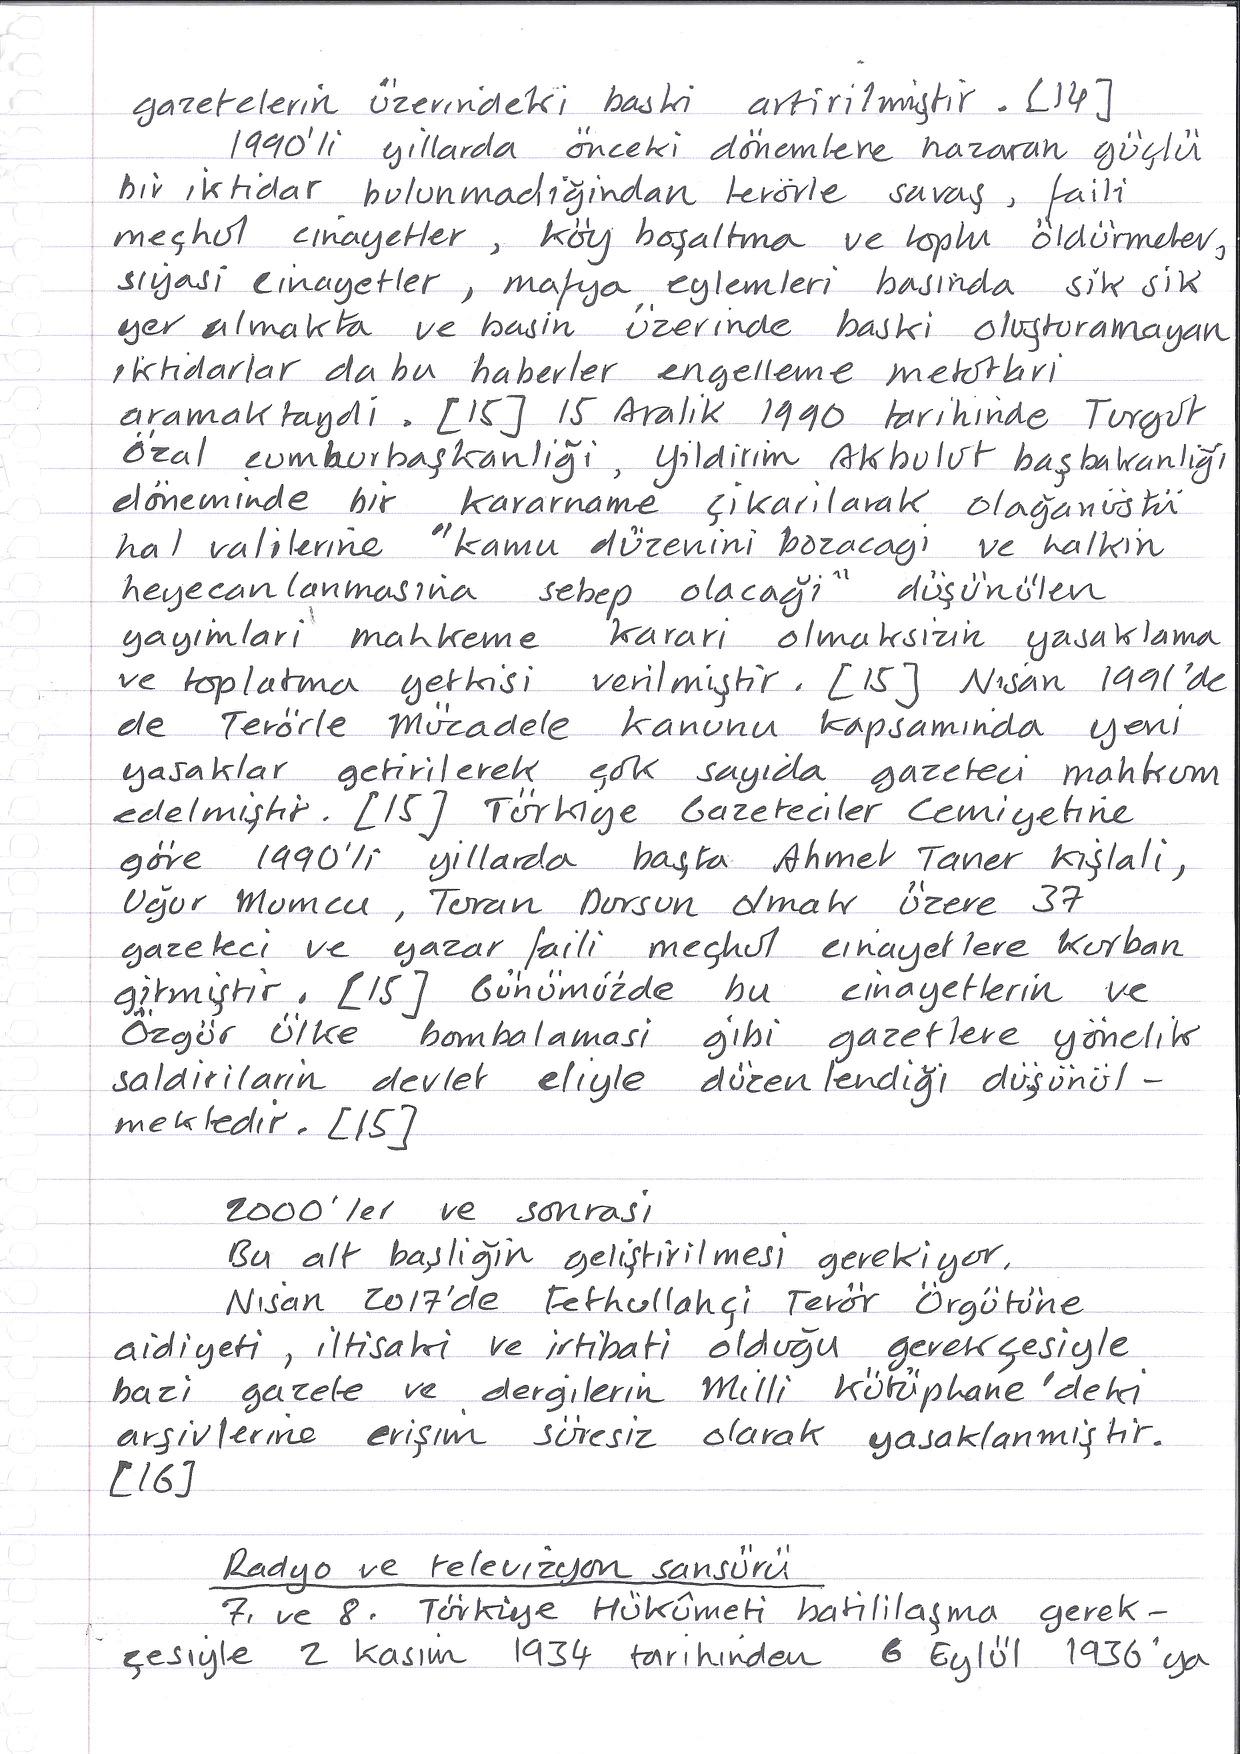 gazetelerin üzerindeki baski artirilmiştir. [14]
1990'li yillarda önceki dönemlere nazaran güçlü
bir iktidar bulunmadiğindan terörle savaş, faili
meçhul cinayetler, köy boşaltma ve toplu öldürmeler,
siyasi cinayetler, mafya eylemleri basinda sik sik
yer almakta ve basin üzerinde baski oluşturamayan
iktidarlar da bu haberler engelleme metotlari
aramaktaydi. [15] 15 Aralik 1990 tarihinde Turgut
Özal cumhurbaşkanliği, Yildirim Akbulut başbakanliği
döneminde bir kararname çikarilarak olağanüstü
hal valilerine "kamu düzenini bozacagi ve halkin
heyecanlanmasina sebep olacaği" düşünülen
yayimlari mahkeme karari olmaksizin yasaklama
ve toplatma yetkisi verilmiştir. [15] Nisan 1991'de
de Terörle Mücadele Kanunu kapsaminda yeni
yasaklar getirilerek çok sayida gazeteci mahkum
edelmiştir. [15] Türkiye Gazeteciler Cemiyetine
göre 1990'li yillarda başta Ahmet Taner Kişlali,
Uğur Mumcu, Turan Dursun olmak üzere 37
gazeteci ve yazar faili meçhul cinayetlere kurban
gitmiştir. [15] Günümüzde bu cinayetlerin ve
Özgür Ülke bombalamasi gibi gazetlere yönelik
saldirilarin devlet eliyle düzenlendiği düşünül-
mektedir. [15]
2000'ler ve sonrasi
Bu alt başliğin geliştirilmesi gerekiyor.
Nisan 2017'de Fethullahçi Terör Örgütüne
aidiyeti, iltisaki ve irtibati olduğu gerekçesiyle
bazi gazete ve dergilerin Milli Kütüphane'deki
arşivlerine erişim süresiz olarak yasaklanmiştir.
[16]
Radyo ve televizyon sansürü
7. ve 8. Türkiye Hükûmeti batililaşma gerek-
çesiyle 2 Kasim 1934 tarihinden 6 Eylül 1936'ya